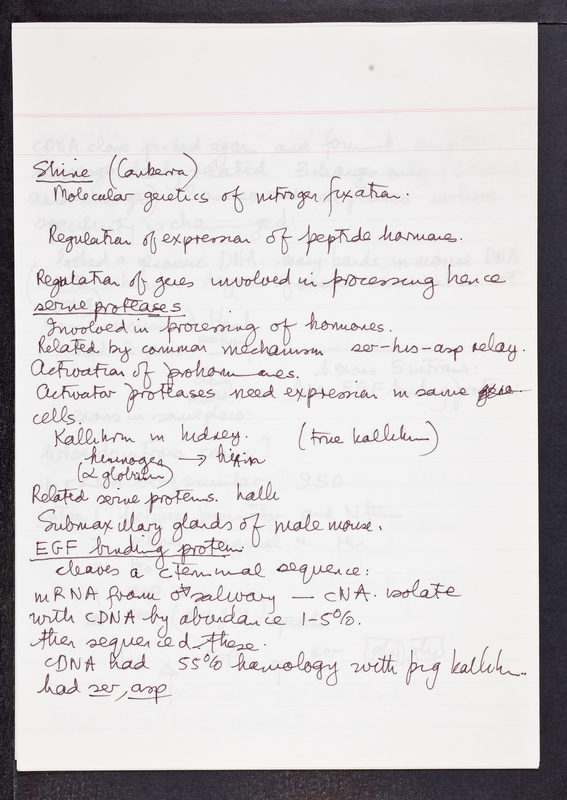 Shine (Canberra)
Molecular genetics of nitrogen fixation.
Regulation of expression of peptide hormones.
Regulation of genes involved in processing hence
serine proteases
Involved in processing of hormones.
Related by common mechanism ser-his-asp relay.
Activation of prohormones.
Activator proteases need expression in same
cells.
Kallikrein in kidney. (true kallikrein)
kininogen →
(α globulin)
Related serine proteins. kalli
Submaxillary glands of male mouse.
EGF binding protein
cleaves a cterminal sequence:
mRNA from ♂ salivary — cNA. isolate
with cDNA by abundance 1-5%.
then sequenced these.
cDNA had 55% homology with pig kallikrein.
had ser, asp